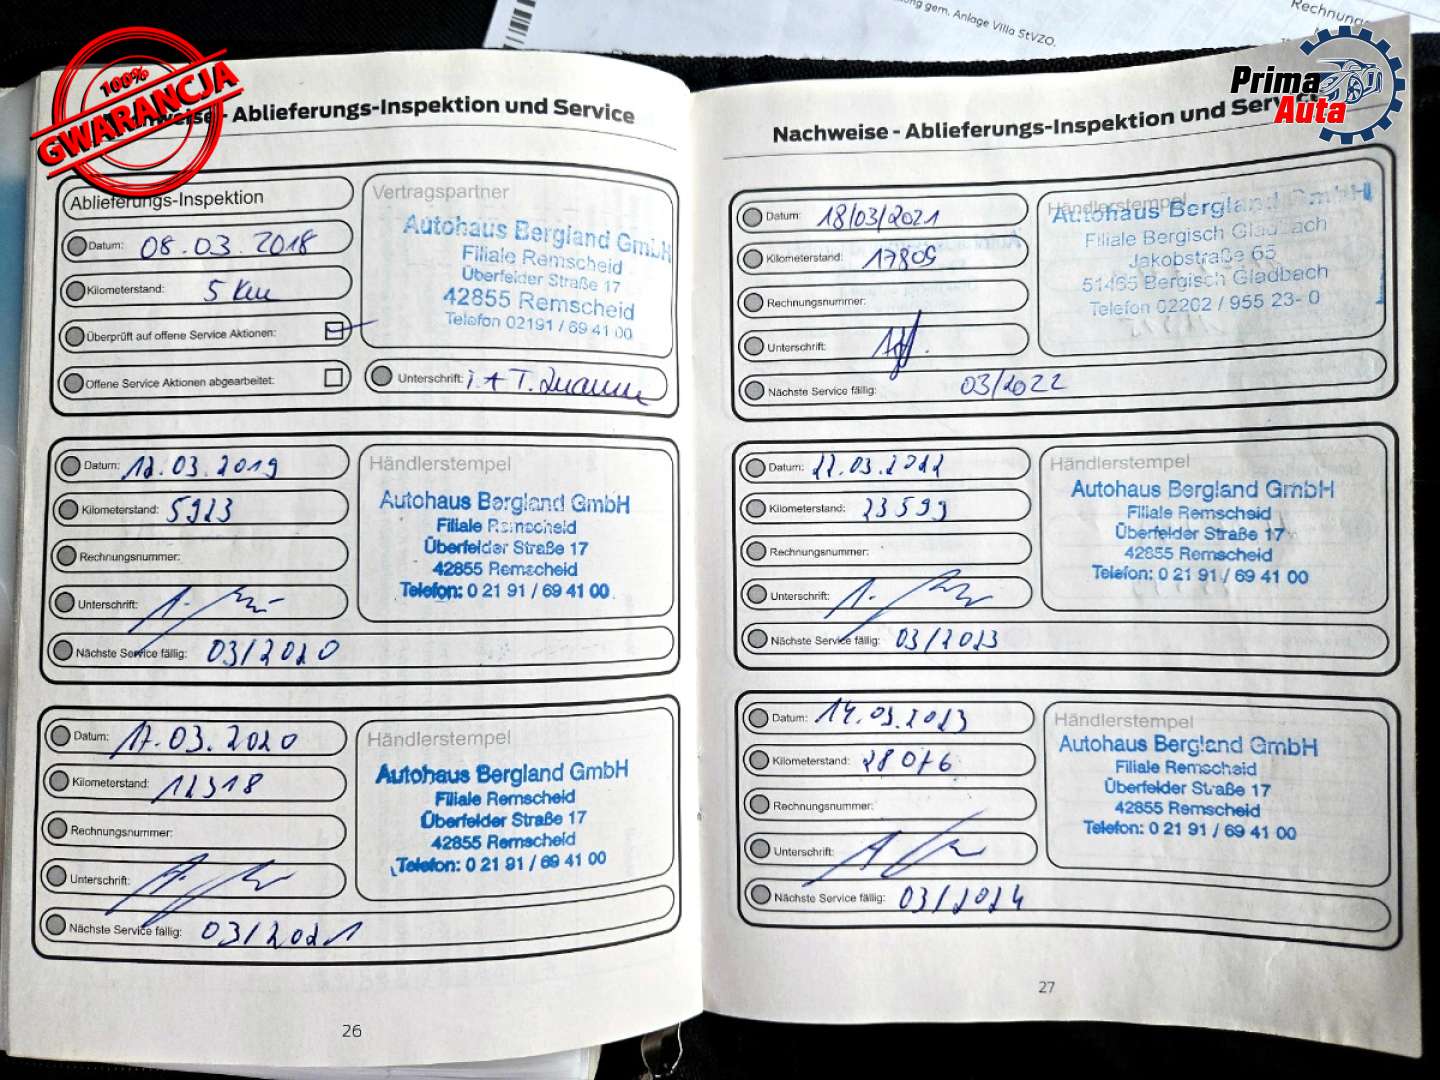 ng gem. Anlage VIIIa StVZO.
Rechnung
100%
GWARANCJA
Prima
Auta
weise - Ablieferungs-Inspektion und Service
Ablieferungs-Inspektion
Datum: 08.03.2018
Kilometerstand: 5 Km
Überprüft auf offene Service Aktionen:
Offene Service Aktionen abgearbeitet:
Vertragspartner
Autohaus Bergland GmbH
Filiale Remscheid
Überfelder Straße 17
42855 Remscheid
Telefon 02191 / 69 41 00
Unterschrift:
Datum: 12.03.2019
Kilometerstand: 5923
Rechnungsnummer:
Unterschrift:
Nächste Service fällig: 03/2020
Händlerstempel
Autohaus Bergland GmbH
Filiale Remscheid
Überfelder Straße 17
42855 Remscheid
Telefon: 0 21 91 / 69 41 00
Datum: 17.03.2020
Kilometerstand: 12318
Rechnungsnummer:
Unterschrift:
Nächste Service fällig: 03/2021
Händlerstempel
Autohaus Bergland GmbH
Filiale Remscheid
Überfelder Straße 17
42855 Remscheid
Telefon: 0 21 91 / 69 41 00
26
Nachweise - Ablieferungs-Inspektion und Service
Datum: 18/03/2021
Kilometerstand: 17809
Rechnungsnummer:
Unterschrift:
Nächste Service fällig: 03/2022
Händlerstempel
Autohaus Bergland GmbH
Filiale Bergisch Gladbach
Jakobstraße 65
51465 Bergisch Gladbach
Telefon 02202 / 955 23- 0
Datum: 22.03.2022
Kilometerstand: 23599
Rechnungsnummer:
Unterschrift:
Nächste Service fällig: 03/2023
Händlerstempel
Autohaus Bergland GmbH
Filiale Remscheid
Überfelder Straße 17
42855 Remscheid
Telefon: 0 21 91 / 69 41 00
Datum: 14.03.2023
Kilometerstand: 28076
Rechnungsnummer:
Unterschrift:
Nächste Service fällig: 03/2024
Händlerstempel
Autohaus Bergland GmbH
Filiale Remscheid
Überfelder Straße 17
42855 Remscheid
Telefon: 0 21 91 / 69 41 00
27